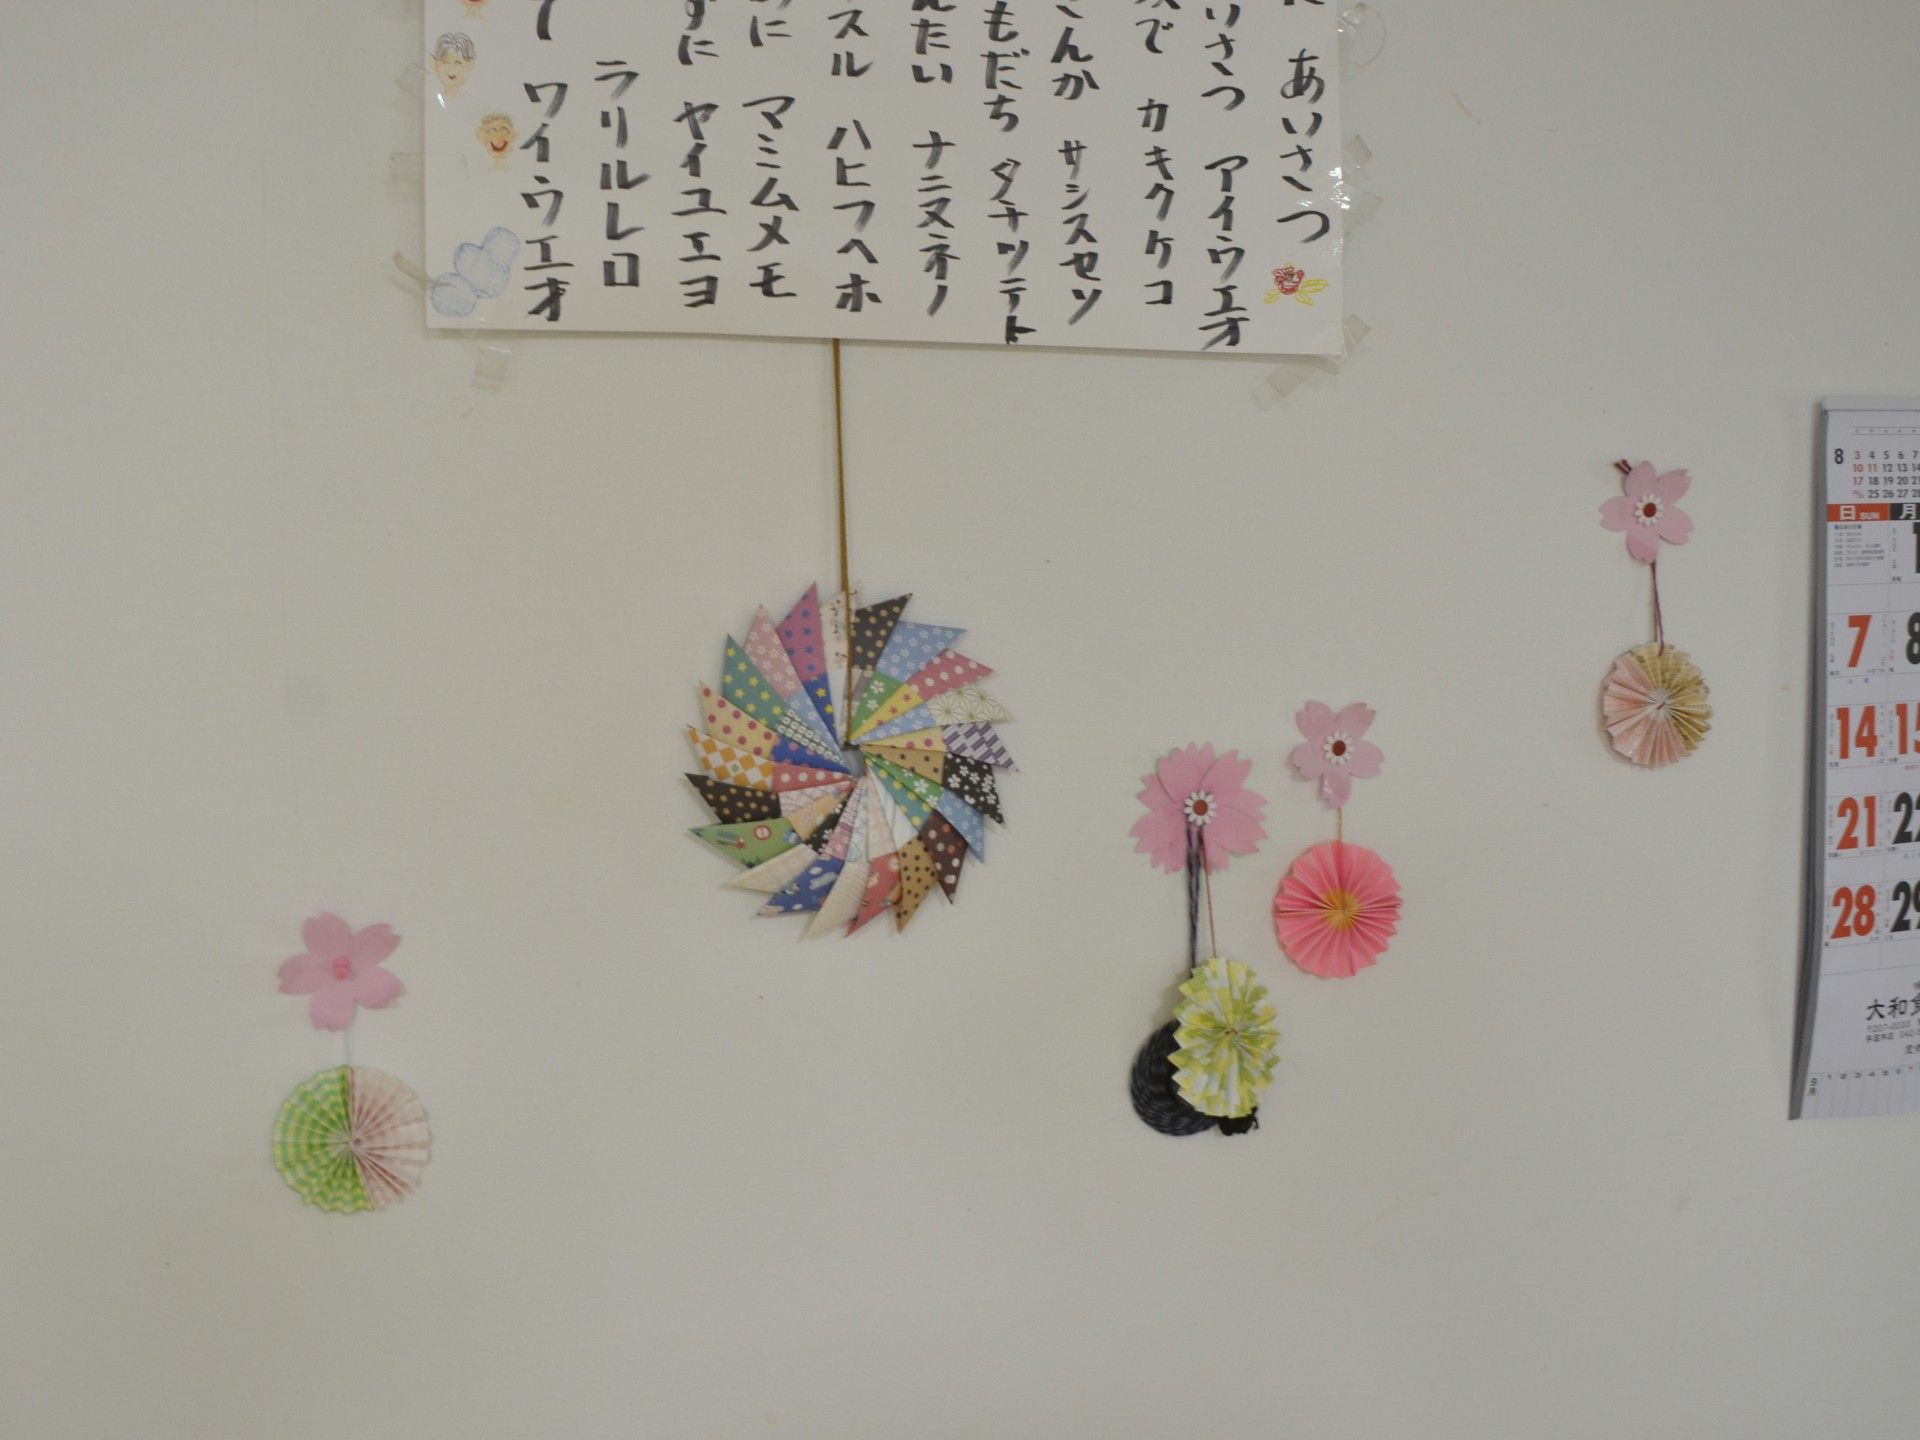 あいさつ
いさつ アイウエオ
で カキクケコ
さんか サシスセソ
もだち タチツテト
んたい ナニヌネノ
スル ハヒフヘホ
に マミムメモ
ずに ヤイユエヨ
ラリルレロ
て ワイウエオ
8 3 4 5 6 7
10 11 12 13
17 18 19 20
25 26 27
日 SUN 月
7 8
14 15
21 22
28 29
大和
〒207-0033